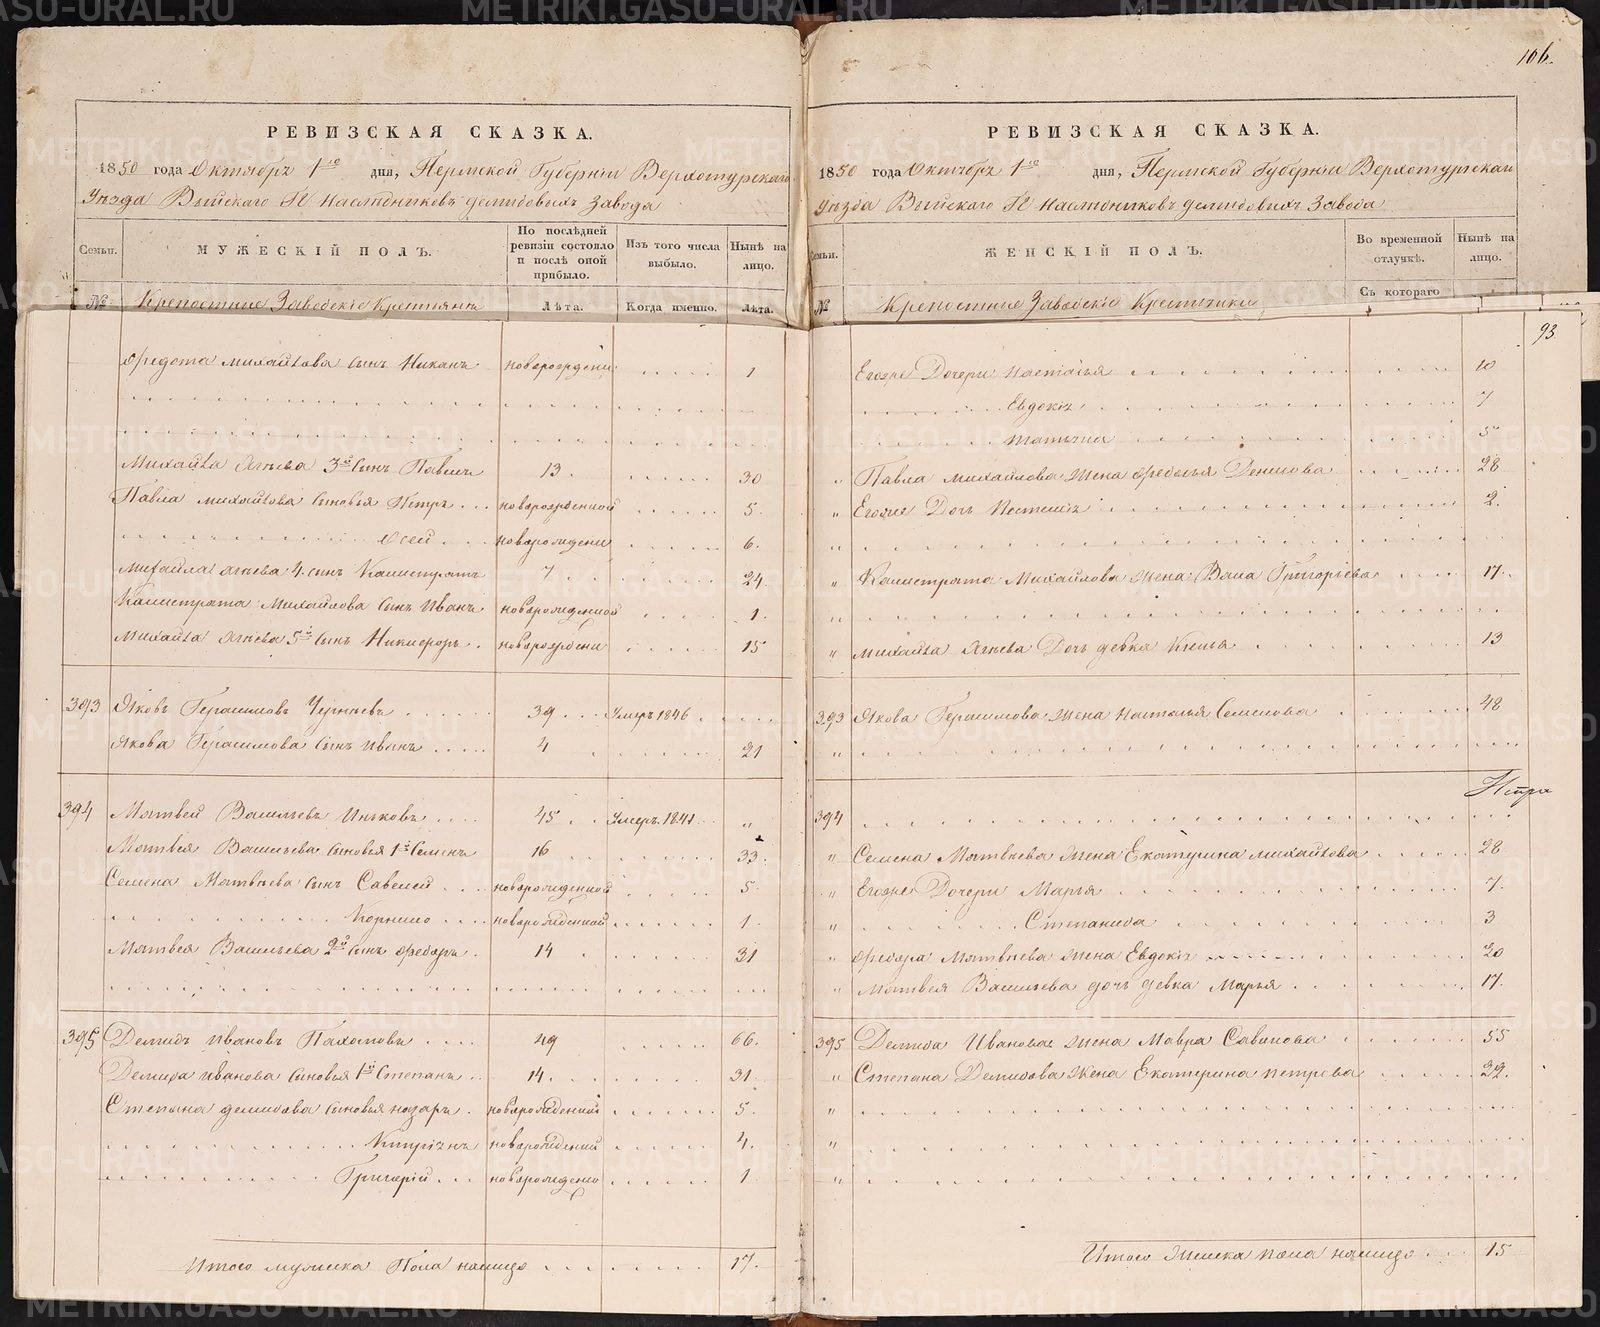 106.
РЕВИЗСКАЯ СКАЗКА.
1850 года Октябрь 1го дня, Пермской Губернiи Верхотурскаго
Уѣзда Выйскаго Гг Наслѣдниковъ Демидовыхъ Завода
Семьи.
МУЖЕСКIЙ ПОЛЪ.
По послѣдней ревизiи состояло и послѣ оной прибыло.
Изъ того числа выбыло.
Нынѣ на лицо.
№
Крепостные Заводскiе Крестьянъ
Лѣта.
Когда именно.
Лѣта.
Федота Михайлова сынъ Никанъ новорожденн 1
Михайла Яковлева 3й сынъ Павелъ 13. 30
Павла Михайлова сыновья Петръ новорожденной 5
Осей новорожден 6.
Михайла 4. сынъ Калистратъ 7 24
Калистрата Михайлова сынъ Иванъ новорожденной 1.
Михайла 5й сынъ Никифоръ новорожден 15
393 Яковъ Герасимовъ 39 Умеръ 1846
Якова Герасимова сынъ Иванъ 4 21
394 Матвей Васильевъ Иньковъ 45 Умеръ 1841 "
Матвея Васильева сыновья 1й Семенъ 16 33.
Семена Матвѣева сынъ Савелей новорожденной 5
Корнило новорожденной 1
Матвея Васильева 2й сынъ Федоръ 14 31
395 Демидъ Ивановъ Пахомовъ 49 66.
Демида Иванова сыновья 1й Степанъ 14. 31
Степана Демидова сыновья Назаръ новорожденный 5
Кипрiянъ новорожденный 4.
Григорiй новорожденно 1
Итого мужска Пола налицо 17.
РЕВИЗСКАЯ СКАЗКА.
1850 года Октября 1го дня, Пермской Губернiи Верхотурскаго
Уѣзда Выйскаго Гг Наслѣдниковъ Демидовыхъ Завода
Семьи.
ЖЕНСКIЙ ПОЛЪ.
Во временной отлучкѣ.
Нынѣ на лицо.
№
Крепостные Заводскiе Крестьянки
Съ котораго
93.
Егоже Дочери Настасья 10
Евдокiя 7
Татьяна 5
" Павла Михайлова жена Федосья Денисова 28
" Егоже Дочь 2.
"
" Калистрата Михайлова жена Григорiева 17.
"
" Михайла Дочь девка 13
393 Якова Герасимова жена Настасья Семенова 48
"
394
" Семена Матвѣева жена Екатерина Михайлова 28
" Егоже Дочери Марья 7.
" Степанида 3
" Федора Матвѣева жена Евдокiя 20
" Матвея Васильева дочь девка Марья 17.
395 Демида Иванова жена Мавра Савинова 55
" Степана Демидова жена Екатерина Петрова 32.
"
"
"
Итого женска пола налицо 15
METRIKI.GASO-URAL.RU